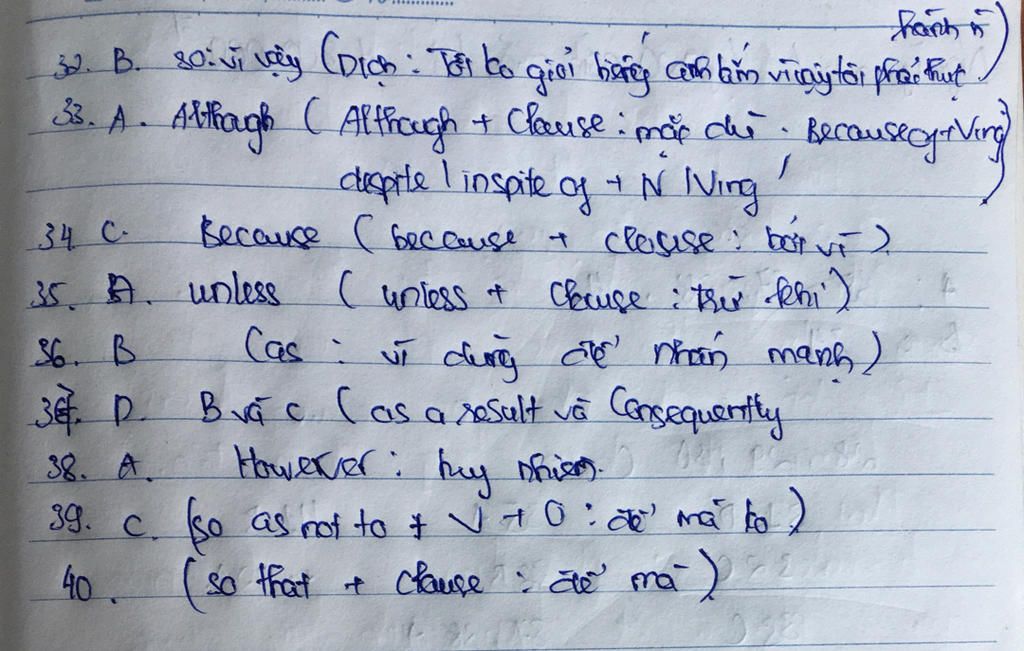 hành n)
32. B. so: vì vậy (Dịch: Tôi ko giỏi bóng bàn vì vậy tôi phải thực
33. A. Although (Although + Clause: mặc dù. Because of + Ving
despite / inspite of + N / Ving)
34 C. Because (because + clause: bởi vì)
35. A. unless (unless + Clause: trừ khi)
36. B (as: vì dùng để nhấn mạnh)
37. D. B và C (as a result và Consequently
38. A. However: tuy nhiên.
39. C. (so as not to + V + O: để mà ko)
40. (so that + clause: để mà)